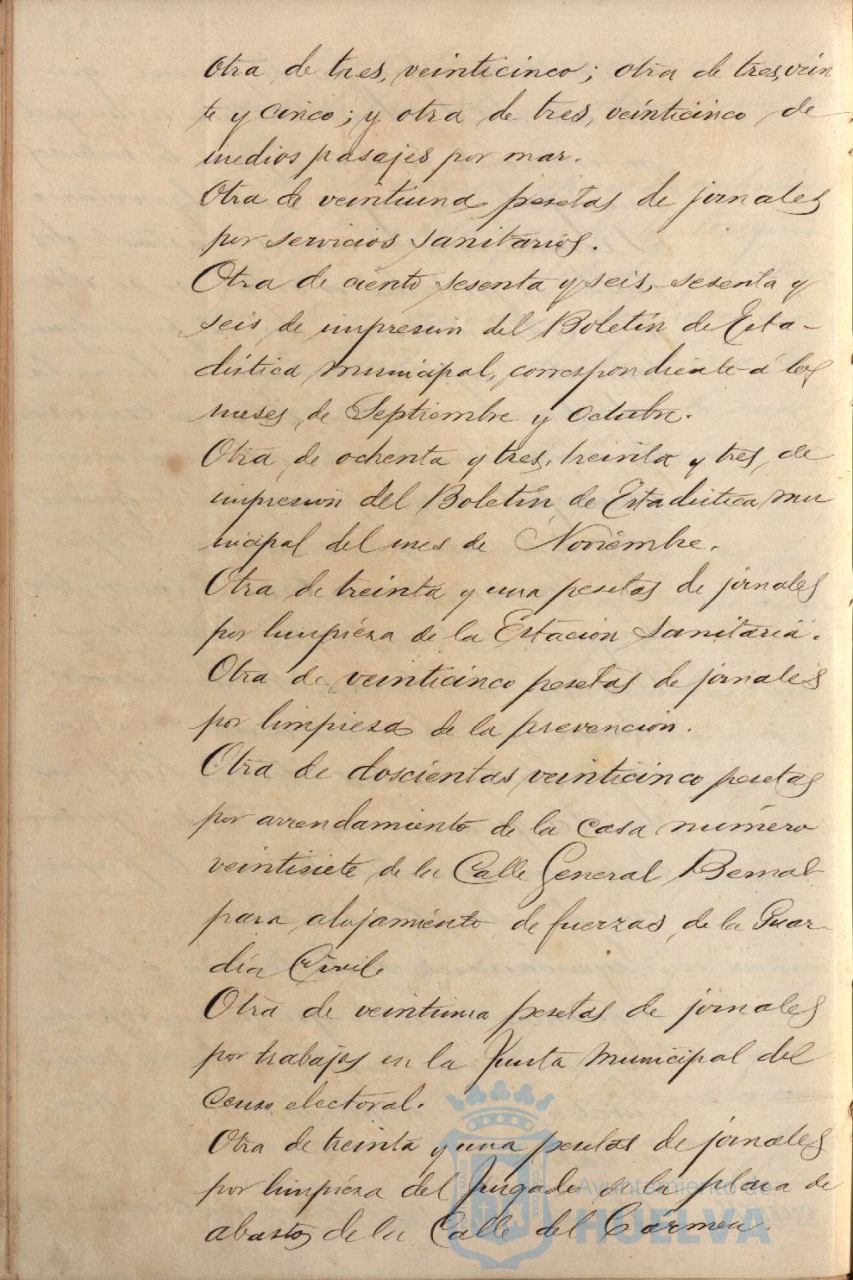 Otra de tres, veinticinco; otra de tres, vein
te y cinco; y otra de tres, veinticinco de
medios pasajes por mar.
Otra de veintiuna pesetas de jornales
por servicios sanitarios.
Otra de ciento sesenta y seis, sesenta y
seis de impresion del Boletín de Esta-
distica municipal, correspondiente á los
meses de Septiembre y Octubre.
Otra de ochenta y tres, treinta y tres, de
impresion del Boletín de Estadistica mu
nicipal del mes de Noviembre.
Otra de treinta y una pesetas de jornales
por limpieza de la Estacion Sanitaria.
Otra de veinticinco pesetas de jornales
por limpieza de la prevencion.
Otra de doscientas veinticinco pesetas
por arrendamiento de la casa número
veintisiete de la Calle General Bernal
para alojamiento de fuerzas de la Guar-
dia Civil.
Otra de veintiuna pesetas de jornales
por trabajos en la Junta Municipal del
Censo electoral.
Otra de treinta y una pesetas de jornales
por limpieza del Juzgado de la plaza de
abastos de la Calle del Carmen.
Ayuntamiento de
HUELVA